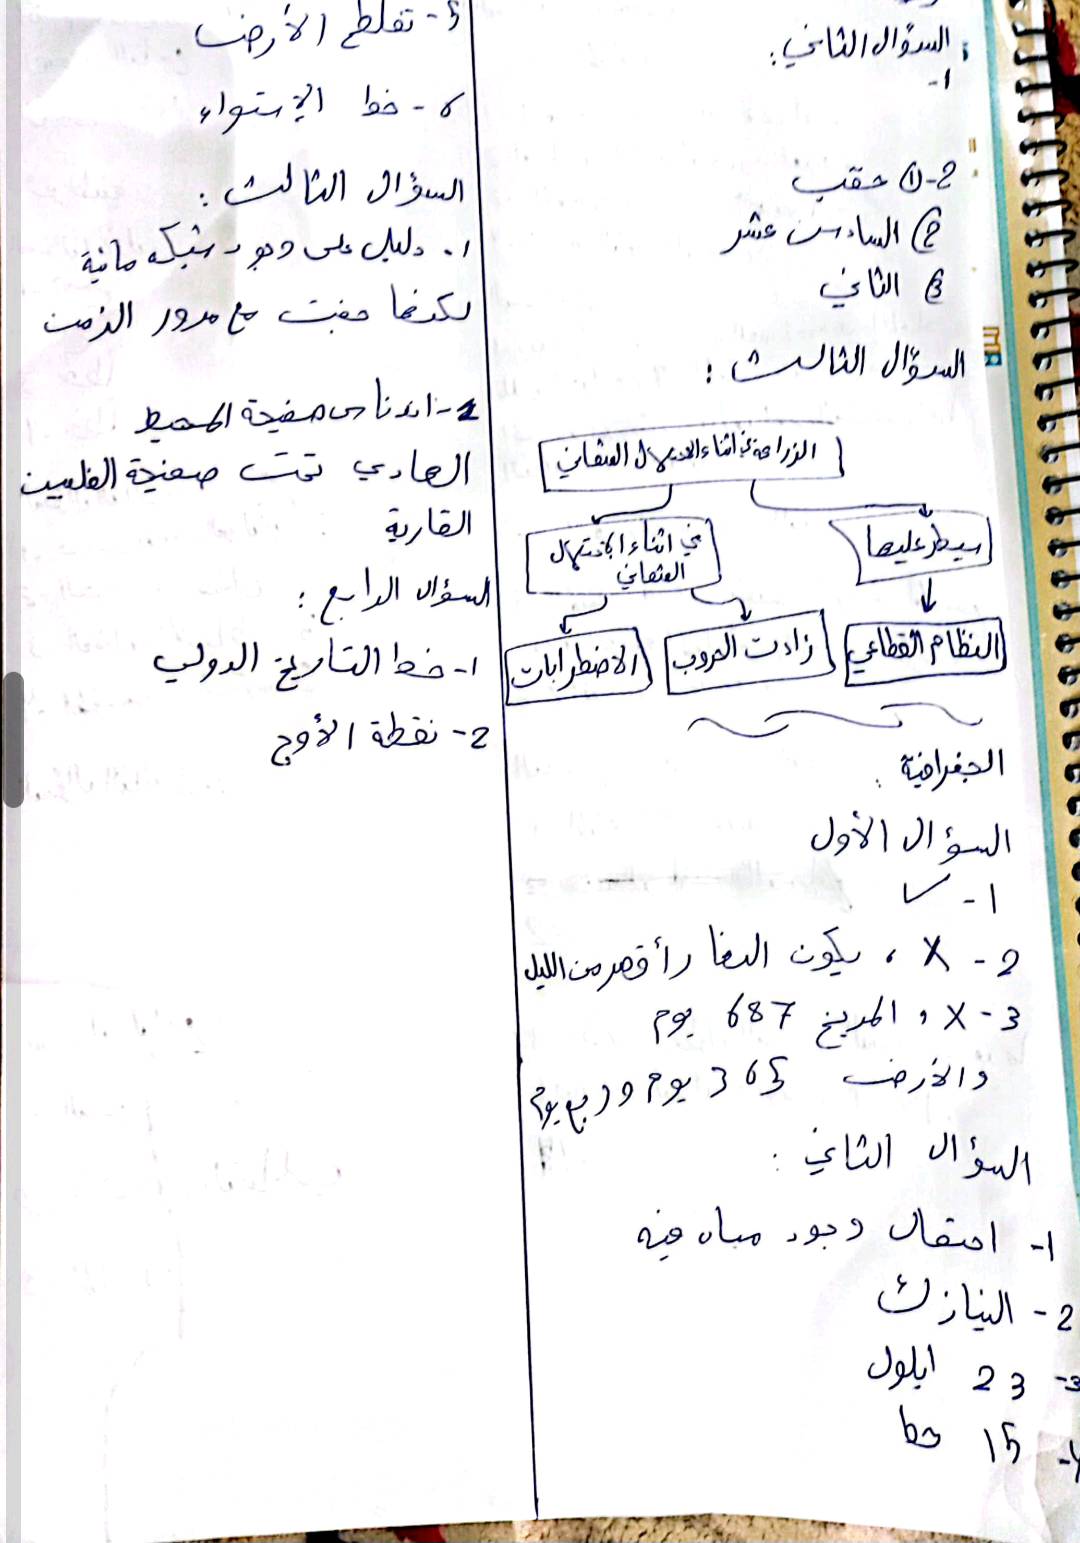 السؤال الثاني:
1-
2- ① حقب
② السادس عشر
③ الثاني
السؤال الثالث :
الزراعة في اثناء الاحتلال العثماني
سيطر عليها
في اثناء الاحتلال
العثماني
النظام القطاعي
زادت الحروب
الاضطرابات
الجغرافية :
السؤال الأول
1- ✓
2- X ، يكون النهار أقصر من الليل
3- X ، المريخ 687 يوم
والأرض 365 يوم وربع يوم
السؤال الثاني :
1- احتمال وجود مياه فيه
2- النيازك
3- 23 ايلول
4- 15 خط
5- تفلطح الأرض .
6- خط الاستواء
السؤال الثالث :
1. دليل على وجود شبكه مائية
لكنها جفت مع مرور الزمن
2- اندساس صفيحة المحيط
الهادي تحت صفيحة الفلبين
القارية
السؤال الرابع :
1- خط التاريخ الدولي
2- نقطة الأوج